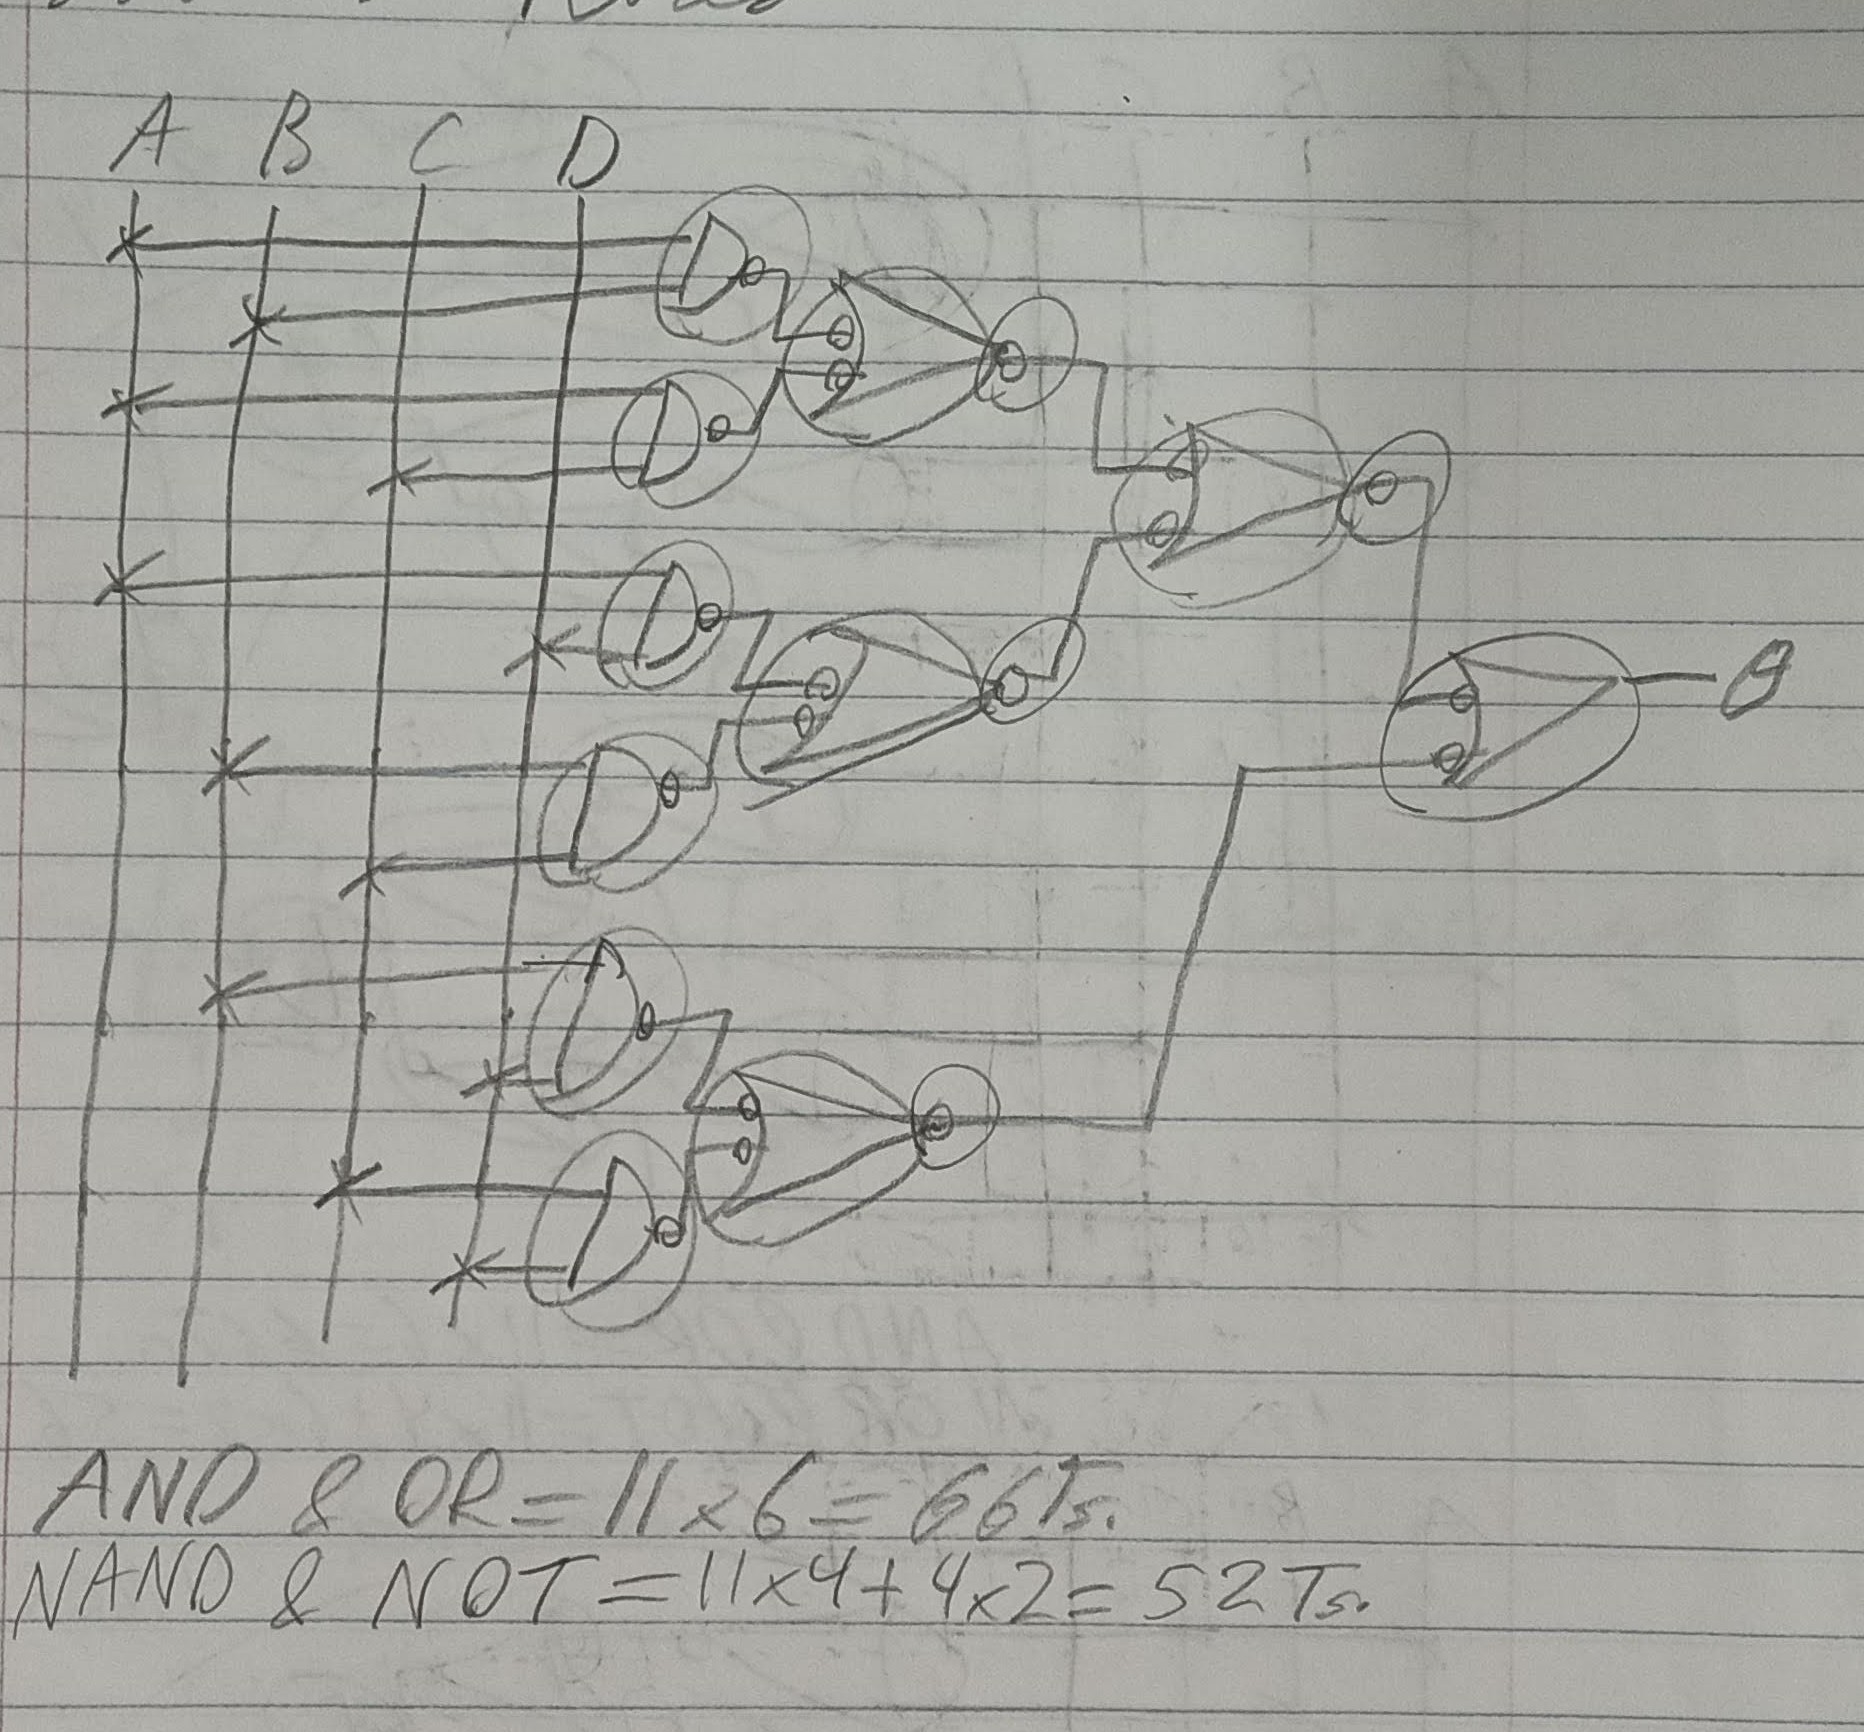 A B C D
Q
AND & OR = 11 x 6 = 66Ts.
NAND & NOT = 11x4 + 4x2 = 52Ts.